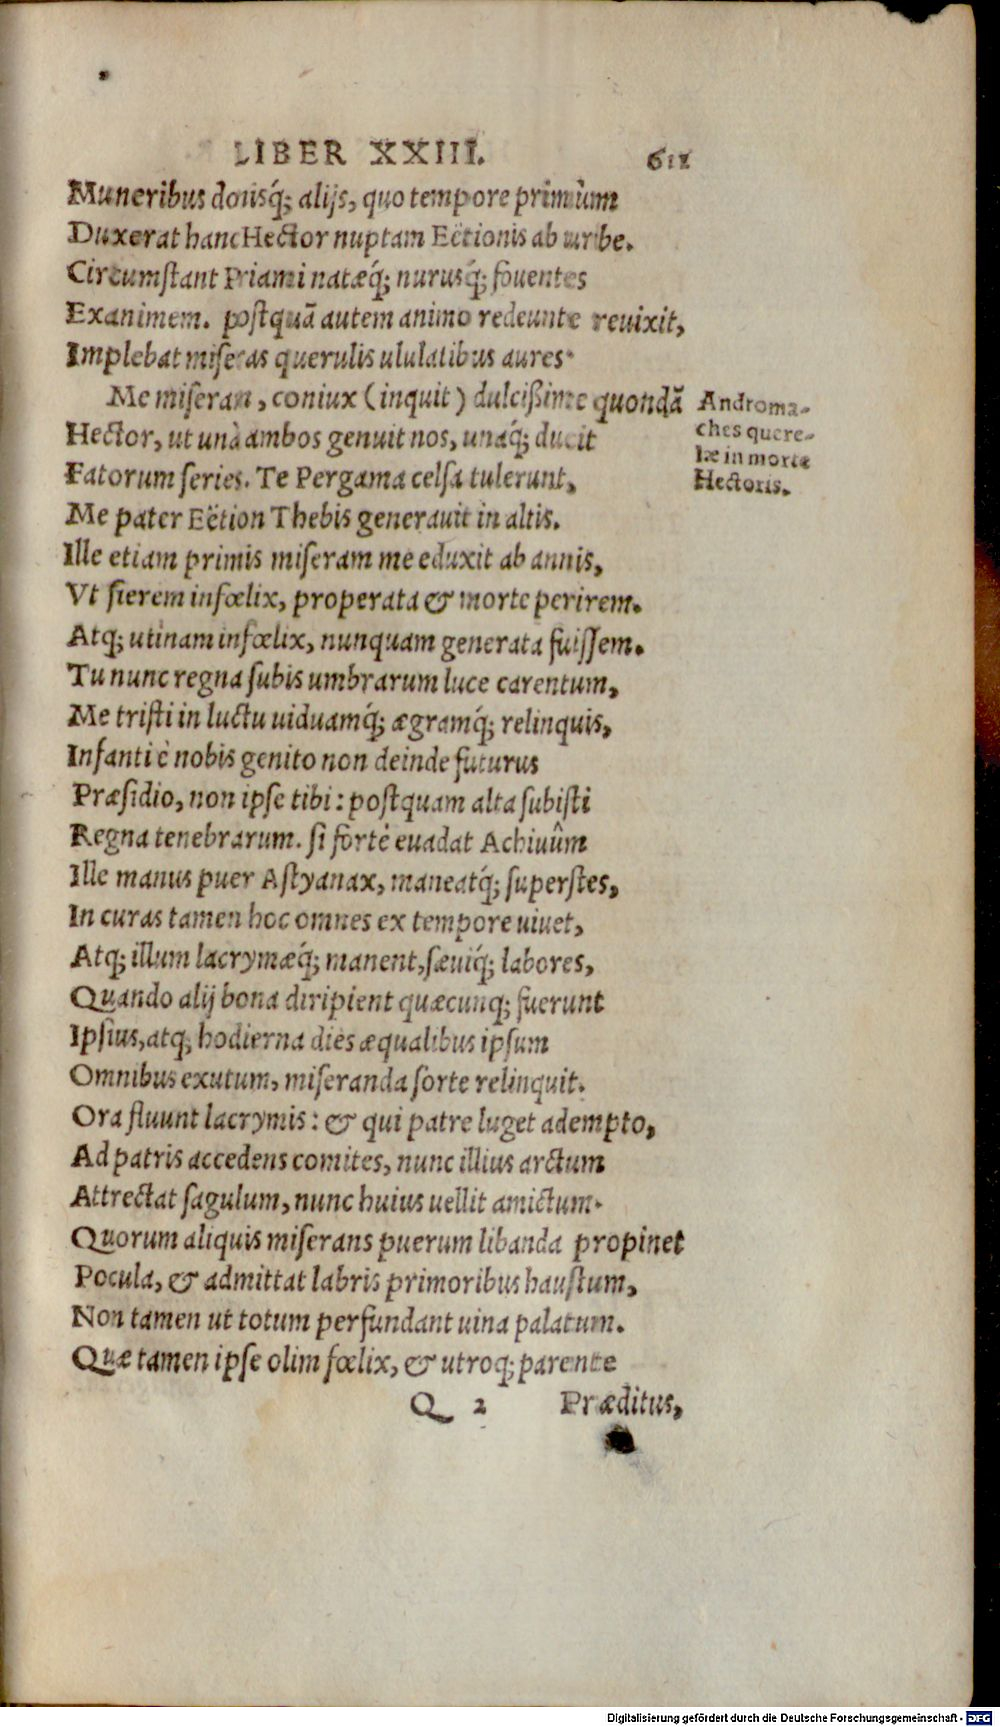 LIBER XXIII. 611
Muneribus donisq́; alijs, quo tempore primùm
Duxerat hanc Hector nuptam Eëtionis ab urbe.
Circumſtant Priami natæq́; nurusq́; fouentes
Exanimem. poſtquã autem animo redeunte reuixit,
Implebat miſeras querulis ululatibus aures.
Me miſeran, coniux (inquit) dulcißime quondã
Hector, ut unà ambos genuit nos, unaq́; ducit
Fatorum ſeries. Te Pergama celſa tulerunt,
Me pater Eëtion Thebis generauit in altis.
Ille etiam primis miſeram me eduxit ab annis,
Vt fierem infœlix, properata & morte perirem.
Atq; utinam infœlix, nunquam generata fuiſſem.
Tu nunc regna ſubis umbrarum luce carentum,
Me triſti in luctu uiduamq́; ægramq́; relinquis,
Infanti è nobis genito non deinde futurus
Præſidio, non ipſe tibi: poſtquam alta ſubiſti
Regna tenebrarum. ſi fortè euadat Achiuûm
Ille manus puer Aſtyanax, maneatq́; ſuperſtes,
In curas tamen hoc omnes ex tempore uiuet,
Atq; illum lacrymæq́; manent, ſæuiq́; labores,
Quando alij bona diripient quæcunq; fuerunt
Ipſius, atq; hodierna dies æqualibus ipſum
Omnibus exutum, miſeranda ſorte relinquit.
Ora fluunt lacrymis: & qui patre luget adempto,
Ad patris accedens comites, nunc illius arctum
Attrectat ſagulum, nunc huius uellit amictum.
Quorum aliquis miſerans puerum libanda propinet
Pocula, & admittat labris primoribus hauſtum,
Non tamen ut totum perfundant uina palatum.
Quæ tamen ipſe olim fœlix, & utroq; parente
Q 2 Præditus,
Androma-
ches quere-
læ in morte
Hectoris.
Digitalisierung gefördert durch die Deutsche Forschungsgemeinschaft - DFG